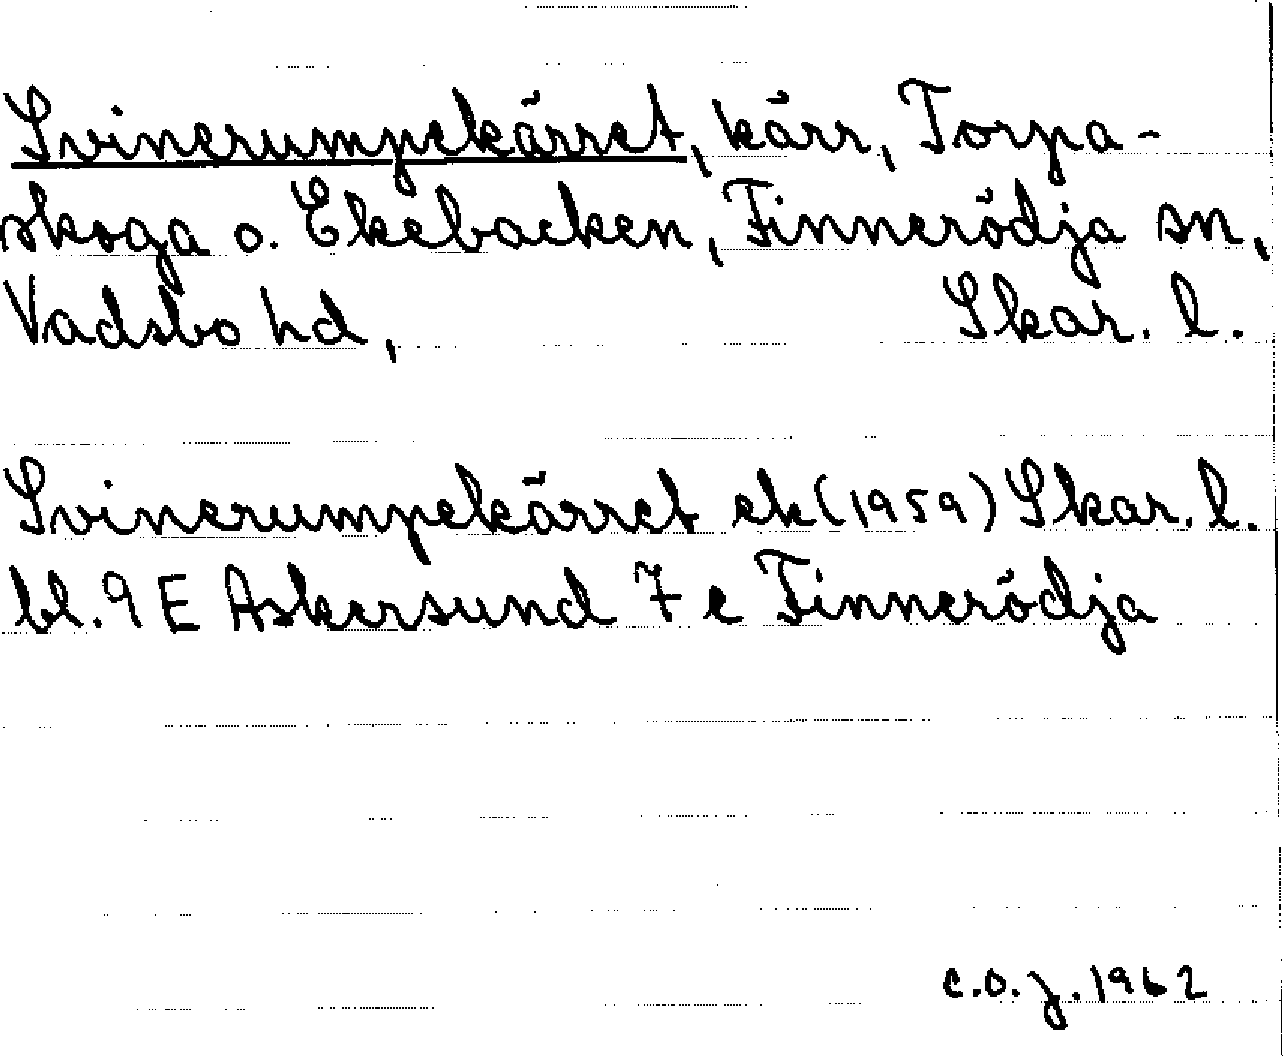 Svinerumpekärret, kärr, Torpa-
skoga o. Ekebacken, Finnerödja sn,
Vadsbo hd, Skar. l.
Svinerumpekärret ek (1959) Skar. l.
bl. 9 E Askersund 7 e Finnerödja
C.O.J. 1962